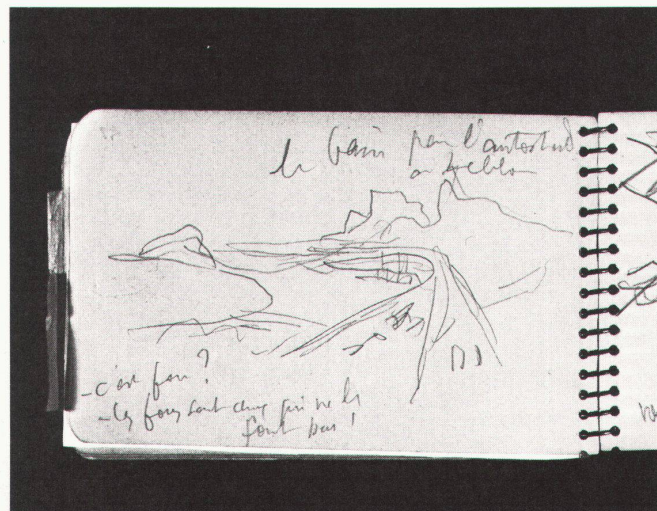 le gain pour l'autostrade
au Leblon
- c'est fou?
- les fous sont ceux qui ne le
font pas!